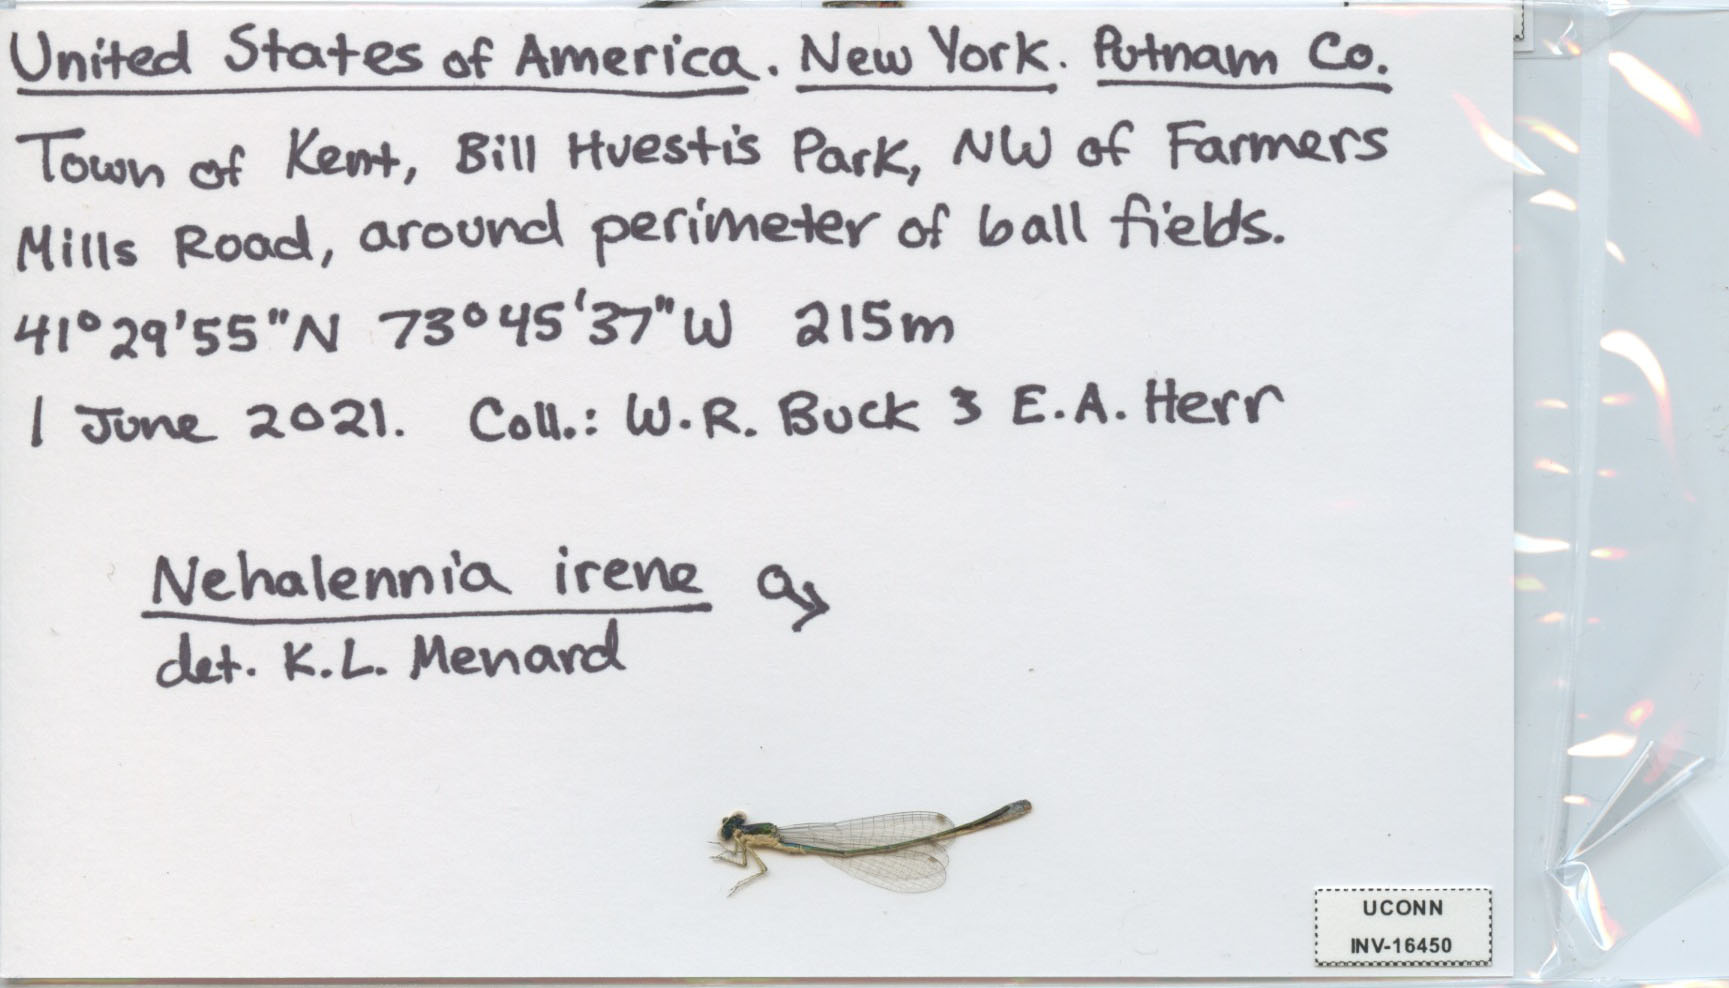 United States of America. New York. Putnam Co.
Town of Kent, Bill Huestis Park, NW of Farmers
Mills Road, around perimeter of ball fields.
41°29'55"N 73°45'37"W 215m
1 June 2021. Coll.: W.R. Buck & E.A. Herr
Nehalennia irene ♂
det. K.L. Menard
UCONN
INV-16450